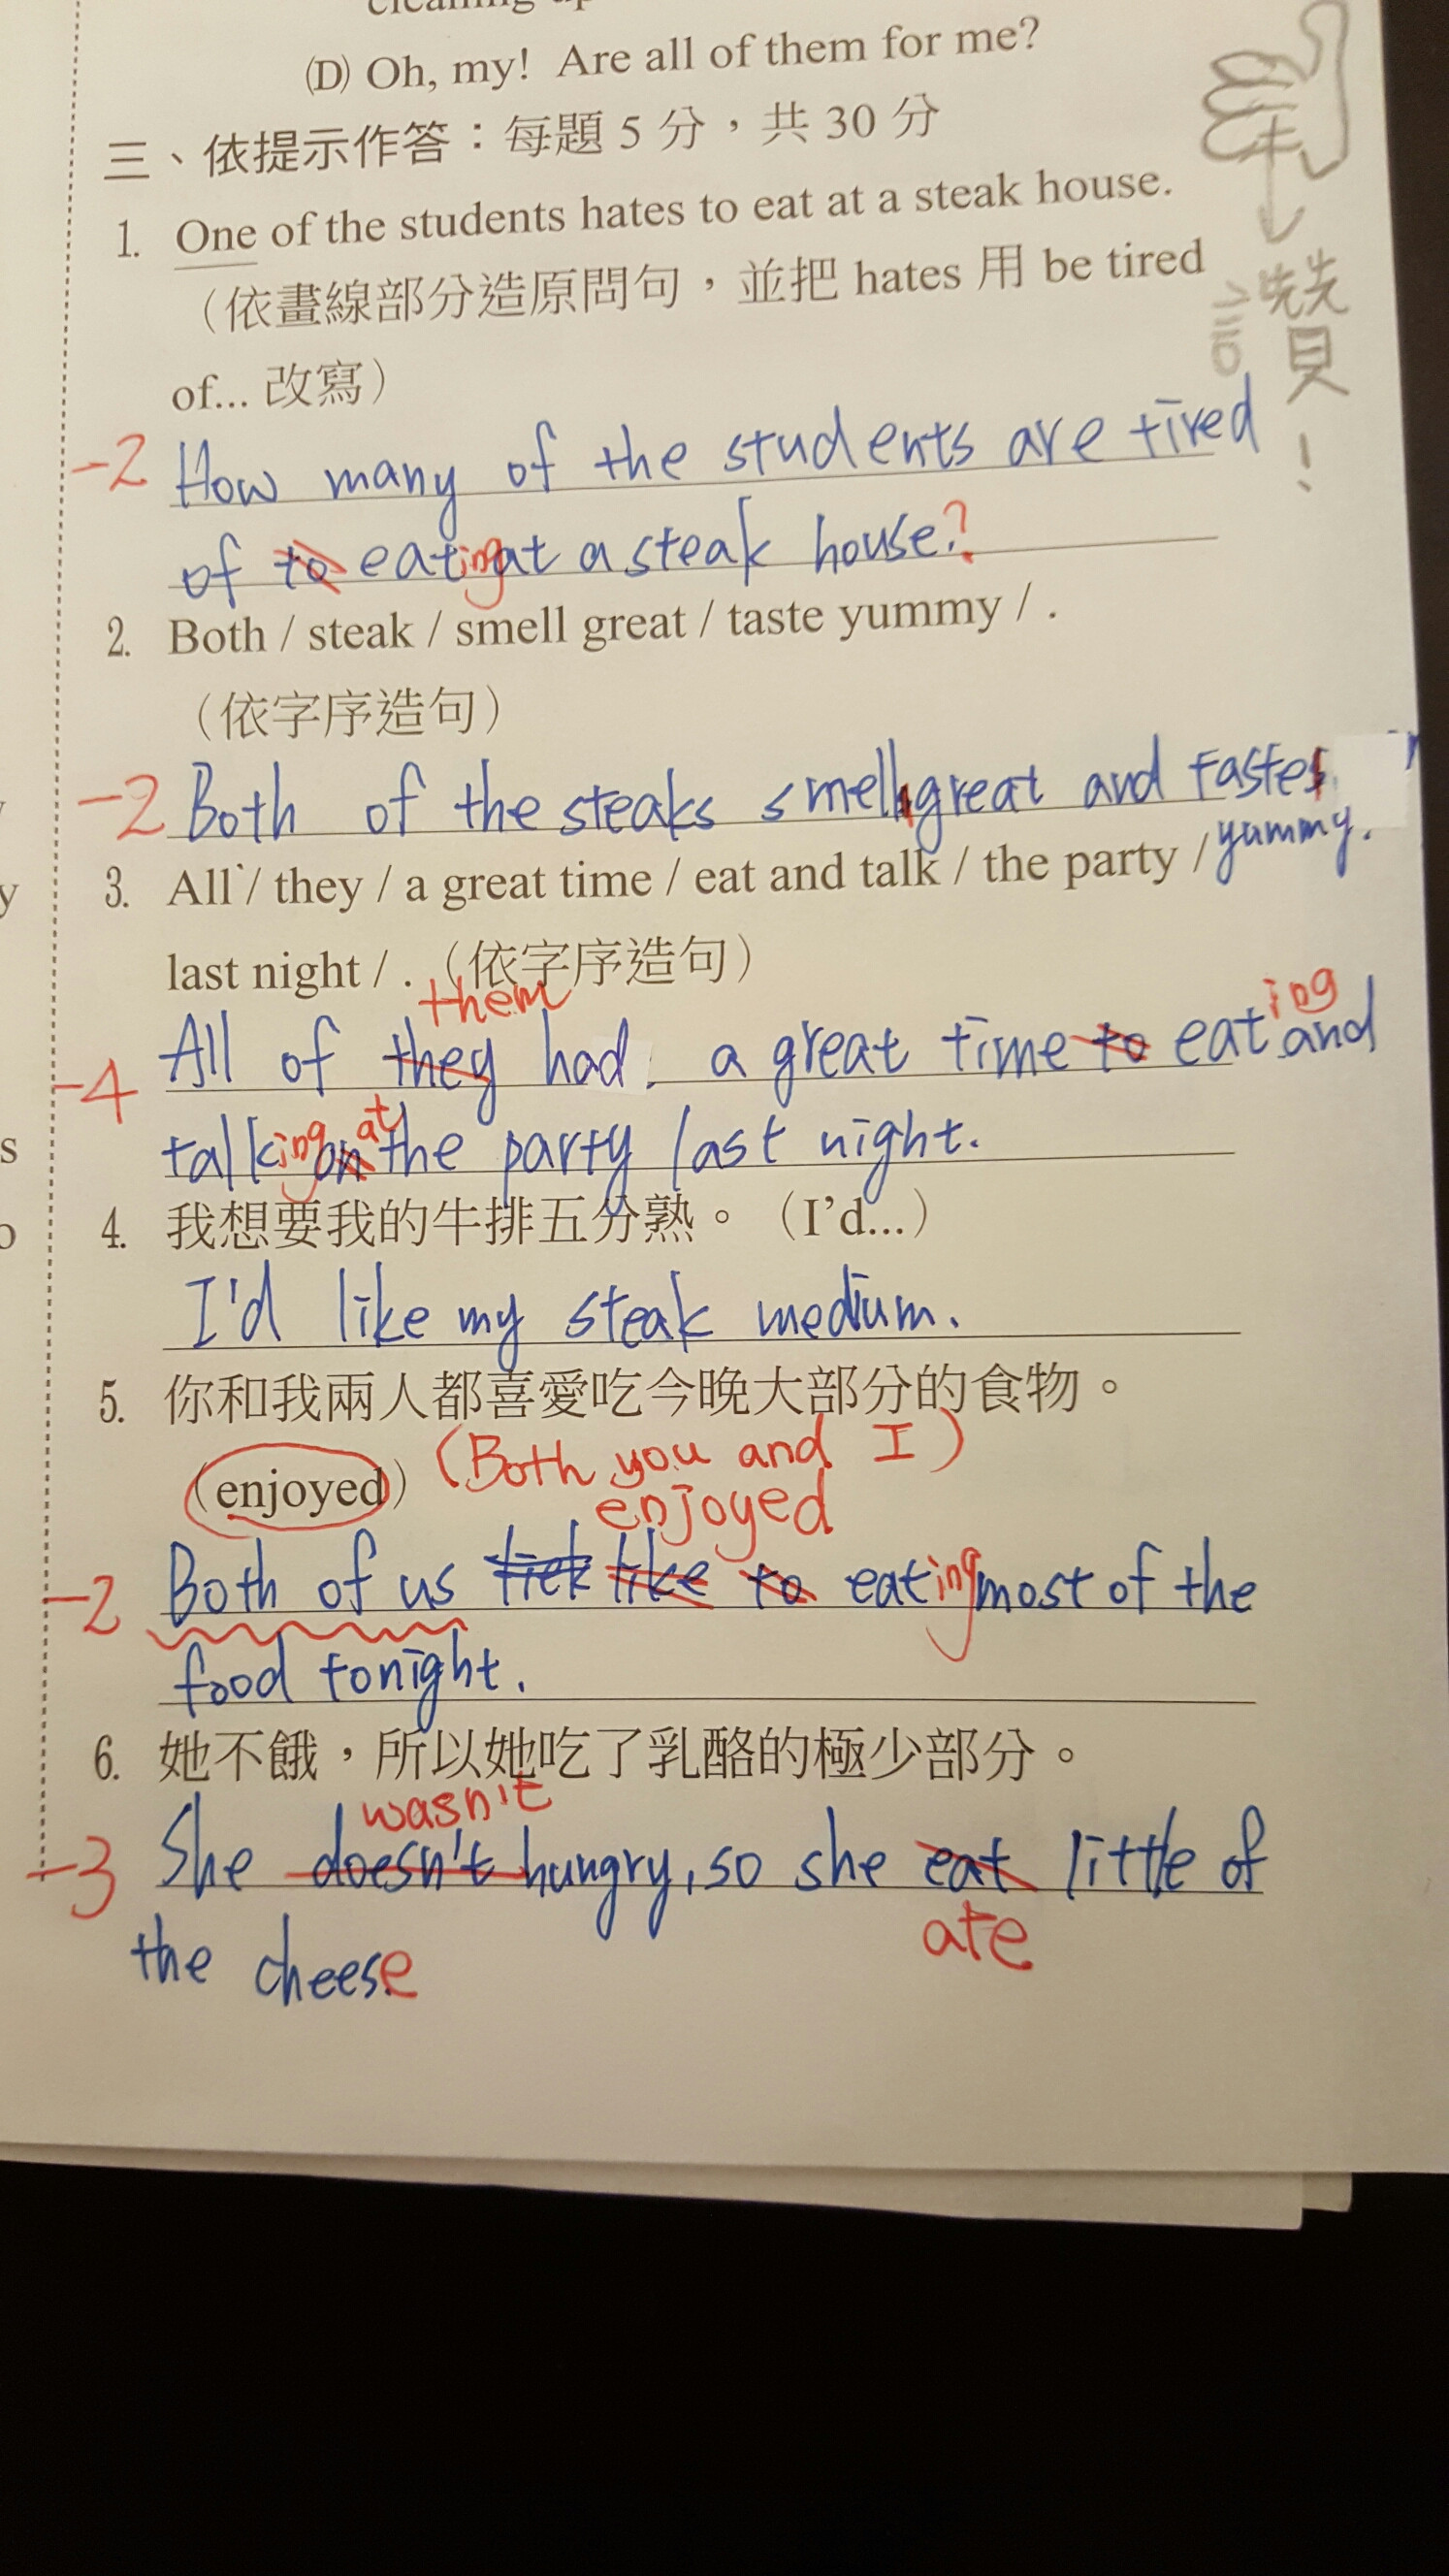 cleaning up
(D) Oh, my! Are all of them for me?
三、依提示作答：每題 5 分，共 30 分
1. One of the students hates to eat at a steak house.
（依畫線部分造原問句，並把 hates 用 be tired
of... 改寫）
牛
讚！
-2 How many of the students are tired
of to eating at a steak house?
2. Both / steak / smell great / taste yummy / .
（依字序造句）
-2 Both of the steaks smells great and tastes
yummy.
3. All / they / a great time / eat and talk / the party /
last night / .（依字序造句）
them
ing
-4 All of they had a great time to eat and
at
talking on the party last night.
4. 我想要我的牛排五分熟。（I'd...）
I'd like my steak medium.
5. 你和我兩人都喜愛吃今晚大部分的食物。
（enjoyed） (Both you and I)
enjoyed
-2 Both of us like to eating most of the
food tonight.
6. 她不餓，所以她吃了乳酪的極少部分。
wasn't
-3 She doesn't hungry, so she eat little of
ate
the cheese